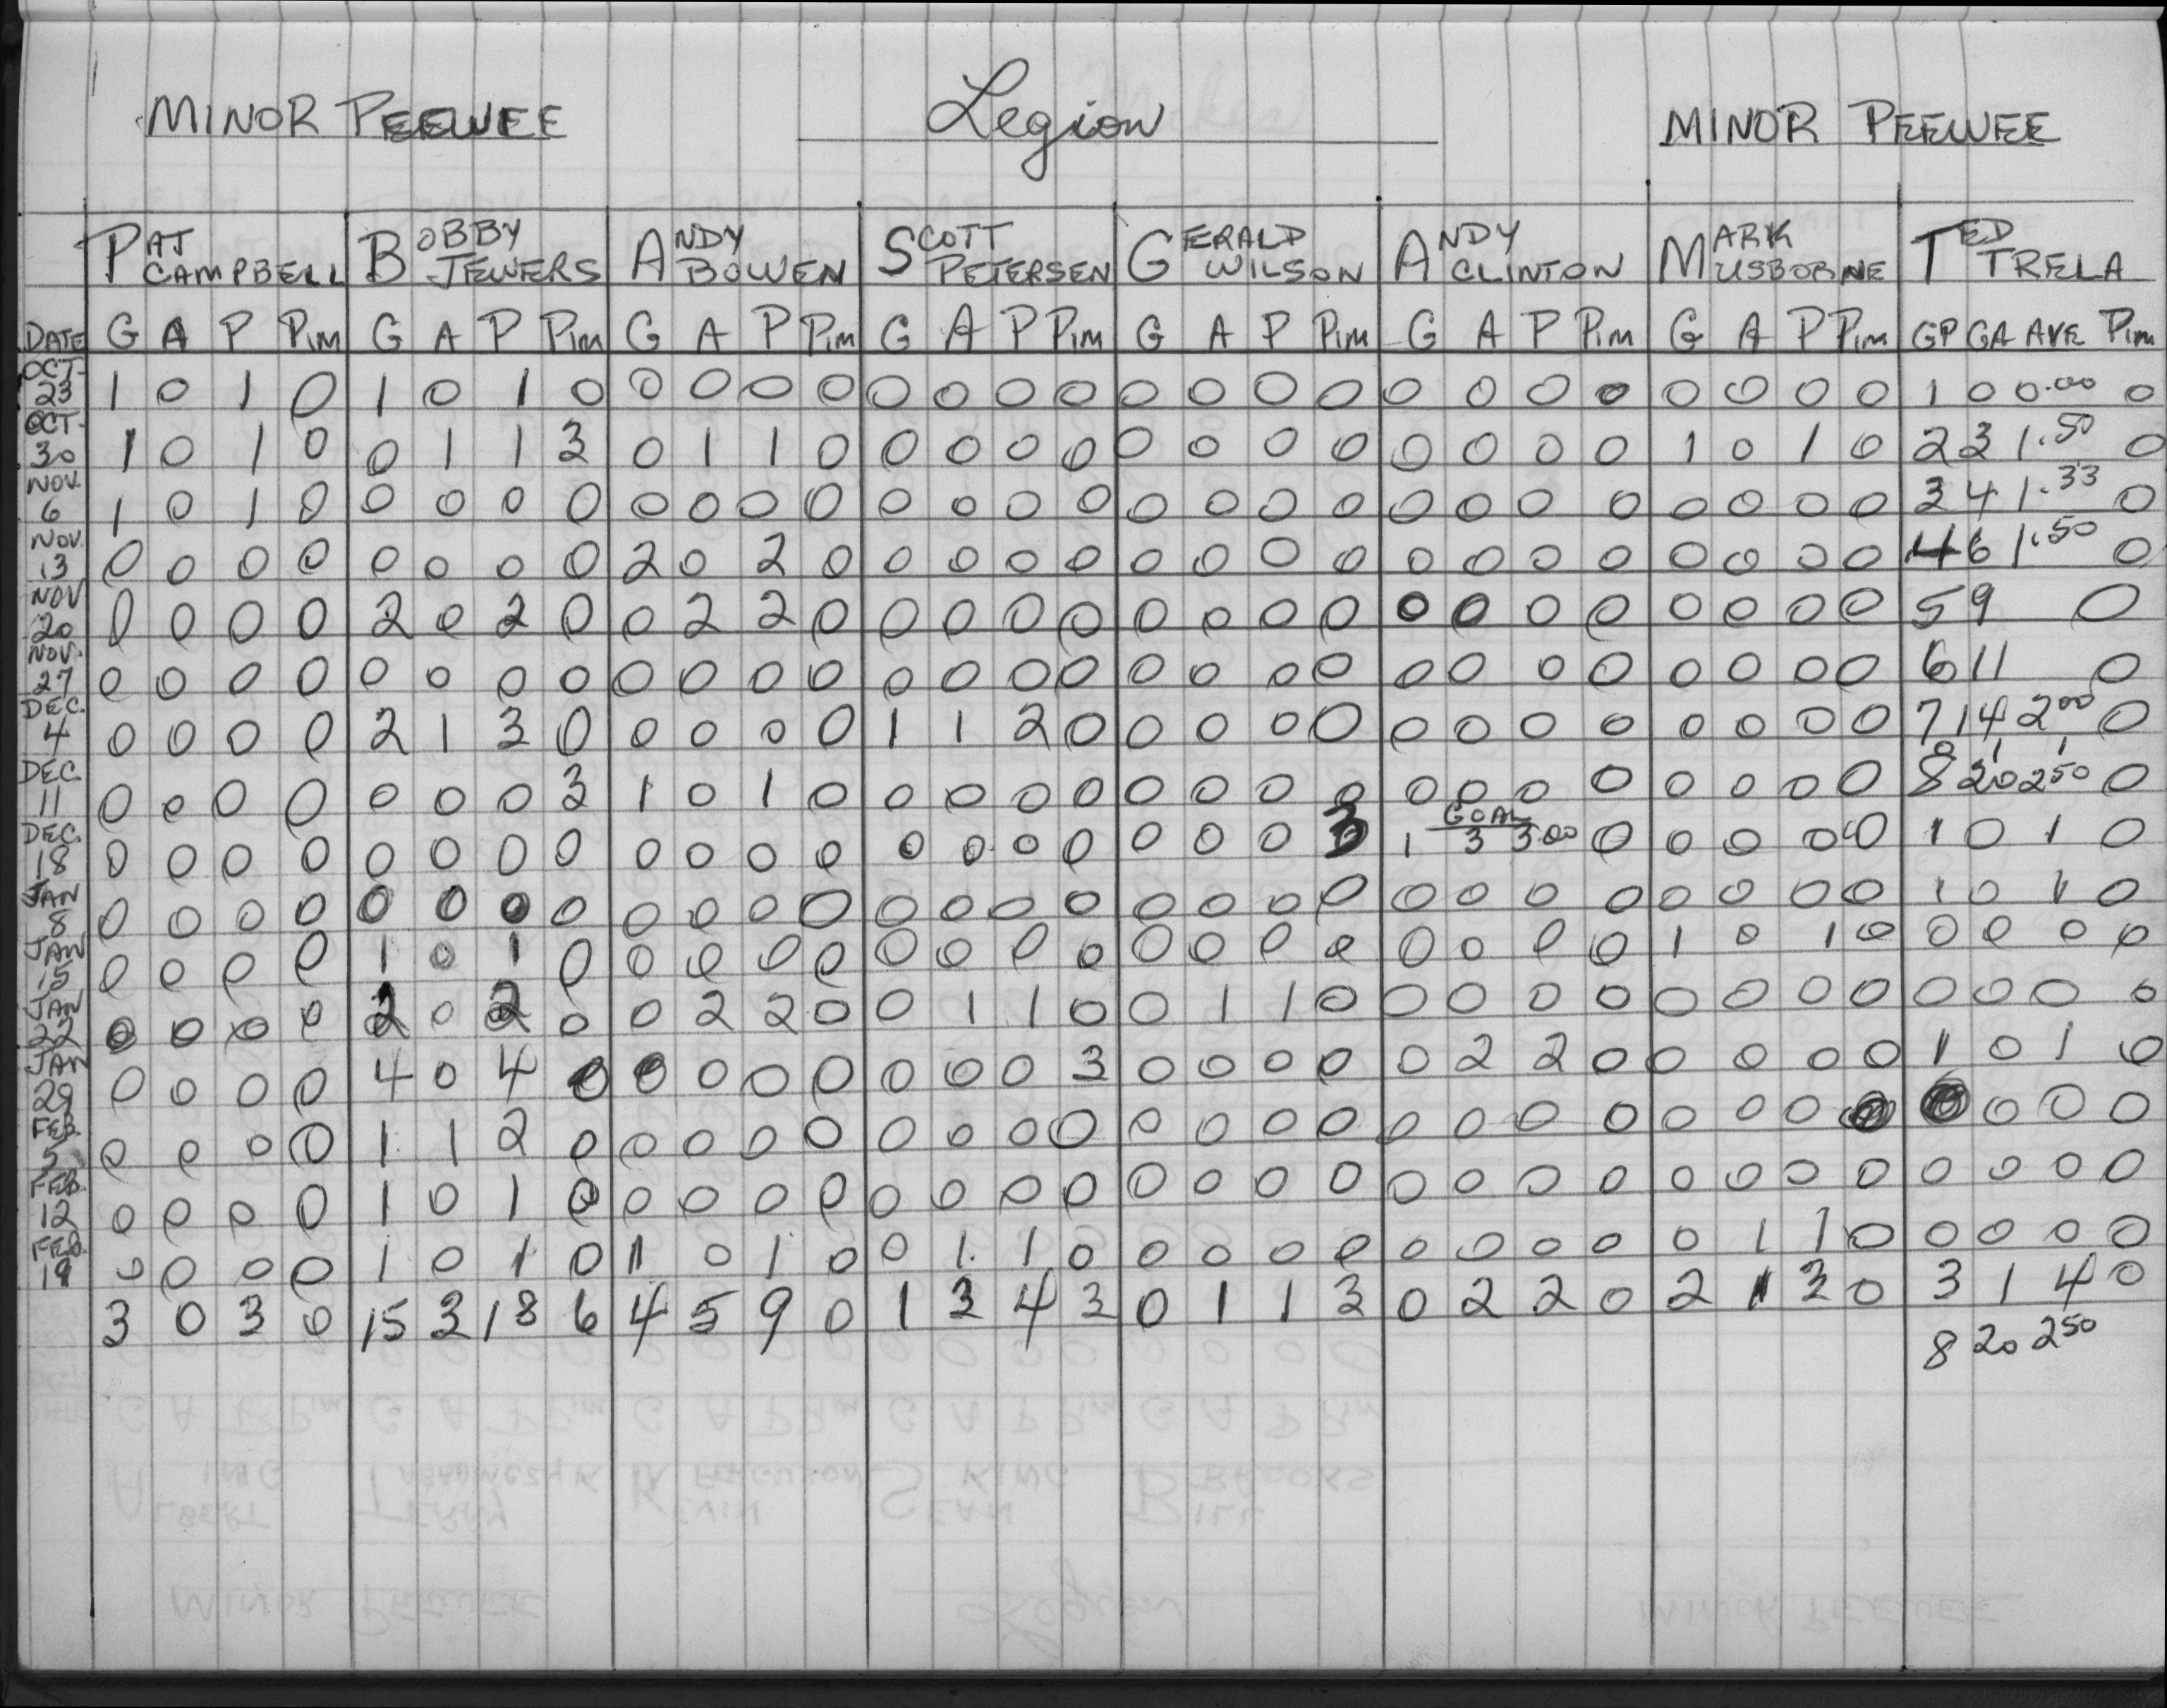 MINOR PEEWEE Legion MINOR PEEWEE
PAT CAMPBELL BOBBY JEWERS ANDY BOWEN SCOTT PETERSEN GERALD WILSON ANDY CLINTON MARK USBORNE TED TRELA
DATE G A P Pim G A P Pim G A P Pim G A P Pim G A P Pim G A P Pim G A P Pim GP GA AVE Pim
OCT. 23 1 0 1 0 1 0 1 0 0 0 0 0 0 0 0 0 0 0 0 0 0 0 0 0 0 0 0 0 1 0 0.00 0
OCT. 30 1 0 1 0 0 1 1 3 0 1 1 0 0 0 0 0 0 0 0 0 0 0 0 0 1 0 1 0 2 3 1.50 0
NOV. 6 1 0 1 0 0 0 0 0 0 0 0 0 0 0 0 0 0 0 0 0 0 0 0 0 0 0 0 0 3 4 1.33 0
NOV. 13 0 0 0 0 0 0 0 0 2 0 2 0 0 0 0 0 0 0 0 0 0 0 0 0 0 0 0 0 4 6 1.50 0
NOV 20 0 0 0 0 2 0 2 0 0 2 2 0 0 0 0 0 0 0 0 0 0 0 0 0 0 0 0 0 5 9 0
NOV. 27 0 0 0 0 0 0 0 0 0 0 0 0 0 0 0 0 0 0 0 0 0 0 0 0 0 0 0 0 6 11 0
DEC. 4 0 0 0 0 2 1 3 0 0 0 0 0 1 1 2 0 0 0 0 0 0 0 0 0 0 0 0 0 7 14 2.00 0
0 1 1
DEC. 11 0 0 0 0 0 0 0 3 1 0 1 0 0 0 0 0 0 0 0 0 0 0 0 0 0 0 0 0 8 20 250 0
GOAL
DEC. 18 0 0 0 0 0 0 0 0 0 0 0 0 0 0 0 0 0 0 0 3 1 3 3.00 0 0 0 0 0 1 0 1 0
JAN 8 0 0 0 0 0 0 0 0 0 0 0 0 0 0 0 0 0 0 0 0 0 0 0 0 0 0 0 0 1 0 1 0
JAN 15 0 0 0 0 1 0 1 0 0 0 0 0 0 0 0 0 0 0 0 0 0 0 0 0 1 0 1 0 0 0 0 0
JAN 22 0 0 0 0 2 0 2 0 0 2 2 0 0 1 1 0 0 1 1 0 0 0 0 0 0 0 0 0 0 0 0 0
JAN 29 0 0 0 0 4 0 4 0 0 0 0 0 0 0 0 3 0 0 0 0 0 2 2 0 0 0 0 0 1 0 1 0
FEB. 5 0 0 0 0 1 1 2 0 0 0 0 0 0 0 0 0 0 0 0 0 0 0 0 0 0 0 0 0 0 0 0 0
FEB. 12 0 0 0 0 1 0 1 0 0 0 0 0 0 0 0 0 0 0 0 0 0 0 0 0 0 0 0 0 0 0 0 0
FEB. 19 0 0 0 0 1 0 1 0 1 0 1 0 0 1 1 0 0 0 0 0 0 0 0 0 0 1 1 0 0 0 0 0
3 0 3 0 15 3 18 6 4 5 9 0 1 3 4 3 0 1 1 3 0 2 2 0 2 1 3 0 3 1 4 0
8 20 250